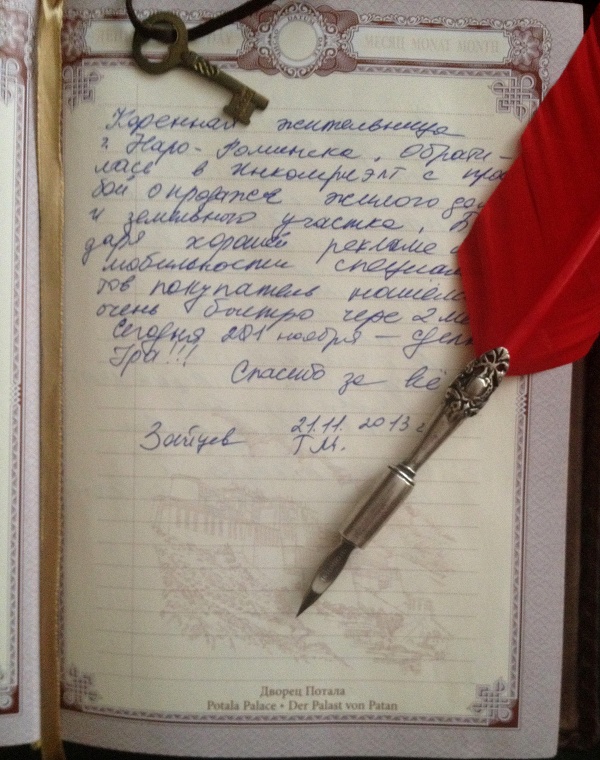 МЕСЯЦ MONAT MONTH
Коренная жительница
г. Наро-Фоминска, обрати-
лась в Инкомриэлт с про
бой о продаже жилого до
и земельного участка, Б
даря хорошей рекламе и
мобильности специал
тов покупатель нашёлс
очень быстро чере 2 ме
Сегодня 21 ноября - сдел
Ура!!!
Спасибо за всё
21.11. 2013 г
Зайцев Г.М.
Дворец Потала
Potala Palace • Der Palast von Patan